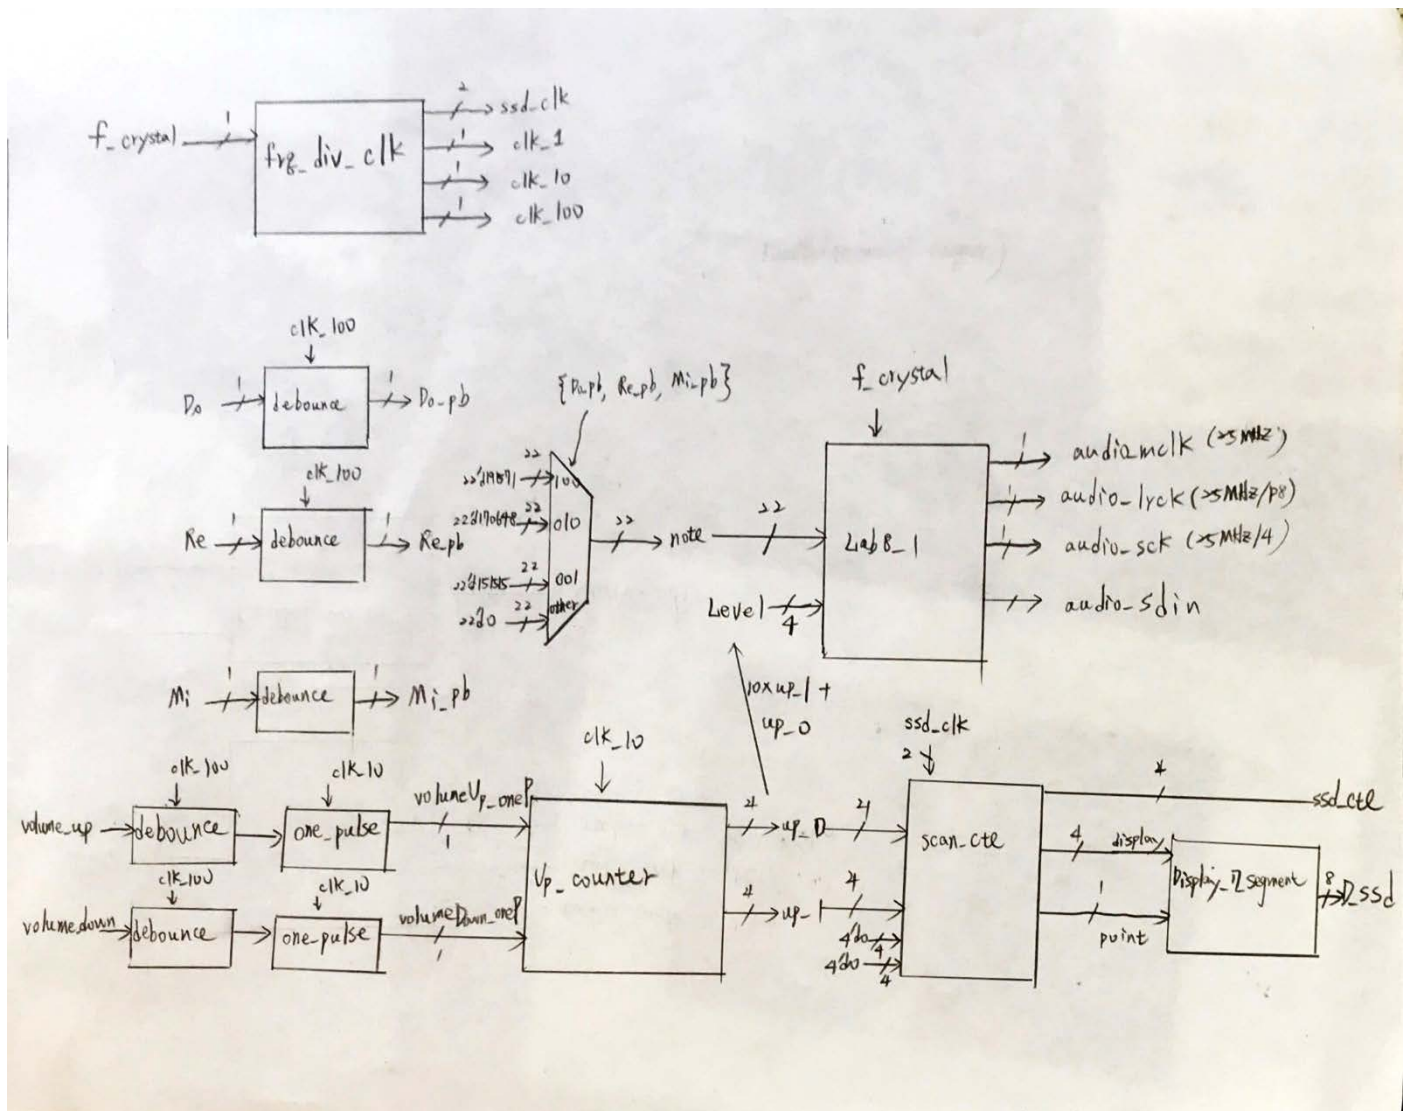 f_crystal
1
frq_div_clk
2
ssd_clk
1
clk_1
1
clk_10
1
clk_100
clk_100
Do
1
debounce
1
Do_pb
clk_100
Re
1
debounce
1
Re_pb
Mi
1
debounce
1
Mi_pb
{Do_pb, Re_pb, Mi_pb}
22
100
22'd170648
22
010
22'd151515
22
001
22'd0
22
other
22
note
22
Level
4
f_crystal
Lab8_1
1
audio_mclk (25MHz)
1
audio_lrck (25MHz/128)
1
audio_sck (25MHz/4)
1
audio_sdin
10xup_1 +
up_0
volume_up
clk_100
debounce
clk_10
one_pulse
volumeUp_oneP
1
volume_down
clk_100
debounce
clk_10
one_pulse
volumeDown_oneP
1
clk_10
Up_counter
4
up_0
4
4
up_1
4
4'd0
4
4'd0
4
ssd_clk
2
scan_ctl
4
ssd_ctl
4
display
1
point
Display_7_segment
8
D_ssd